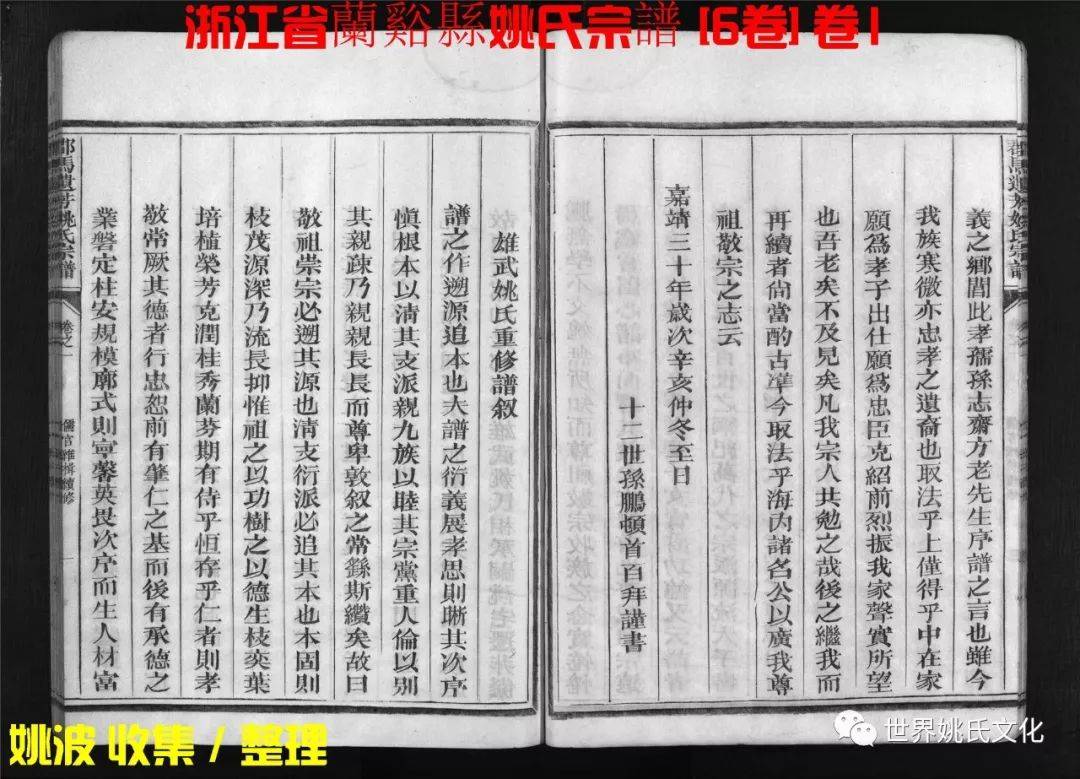 浙江省蘭谿縣姚氏宗譜 [6卷] 卷1
義之鄉閭此孝孺孫志齋方老先生序譜之言也雖今
我族寒微亦忠孝之遺裔也取法乎上僅得乎中在家
願爲孝子出仕願爲忠臣克紹前烈振我家聲實所望
也吾老矣不及見矣凡我宗人共勉之哉後之繼我而
再續者尙當酌古準今取法乎海內諸名公以廣我尊
祖敬宗之志云
嘉靖三十年歲次辛亥仲冬至日
十二世孫鵬頓首百拜謹書
雄武姚氏重修譜叙
譜之作遡源追本也夫譜之衍義展孝思則晰其次序
愼根本以清其支派親九族以睦其宗黨重人倫以别
其親疎乃親親長長而尊卑敦叙之常繇斯纘矣故曰
敬祖崇宗必遡其源也清支衍派必追其本也本固則
枝茂源深乃流長抑惟祖之以功樹之以德生枝奕葉
培植榮芳克潤桂秀蘭芬期有侍乎恒存乎仁者則孝
敬常厥其德者行忠恕前有肇仁之基而後有承德之
業磐定柱安規模廓式則寧馨英畏次序而生人材富
姚氏宗譜
卷之一
一
姚波 收集 / 整理
世界姚氏文化